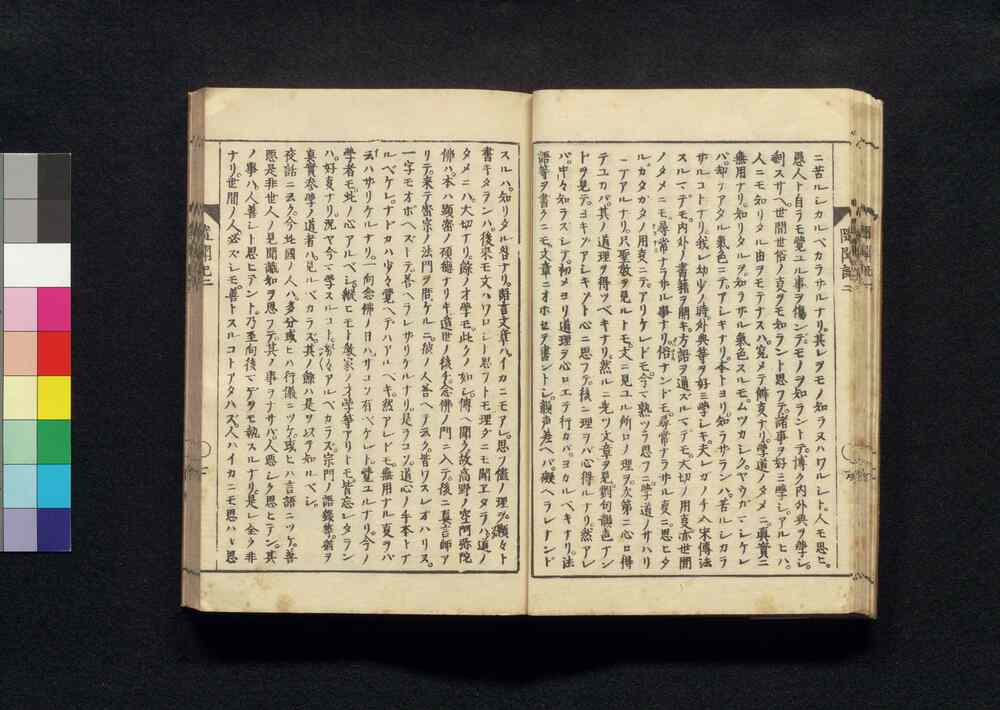 ニ苦ルシカルベカラサルナリ其レヲモノ知ラヌハワルシト人モ思ヒ
愚人ト自ラモ覚ユル事ヲ傷ンデモノヲ知ラントテ博ク内外典ヲ学シ
剰サヘ世間世俗ノ叓ヲモ知ラント思フテ諸事ヲ好ミ学シアルヒハ
人ニモ知リタル由ヲモテナスハ究メテ僻叓ナリ学道ノタメニ真實ニ
無用ナリ知リタルヲ知ラサル氣色スルモムツカシクヤウガマシケレ
バ却テアタル氣色ニテアシキナリ本トヨリ知ラサランハ苦ルシカラ
サルコトナリ我レ幼少ノ時外典等ヲ好ミ学シキ夫レガノチ入宋傳法
スルマデモ内外ノ書籍ヲ開キ方語ヲ通ズルマデモ大切ノ用叓亦世間
ノタメニモ尋常ナラサル事ナリ俗ナンドモ尋常ナラサル叓ニ思ヒタ
ルカタカタノ用叓ニテアリケレドモ今マ熟ツラ思フニ学道ノサハリ
ニテアルナリ只聖教ヲ見ルトモ文ニ見ユル所ロノ理ヲ次第ニ心ロ得
テユカバ其ノ道理ヲ得ツベキナリ然ルニ先ツ文章ヲ見對句韻声ナン
ドヲ見テヨキゾアシキゾト心ニ思フテ後ニ理ヲバ心得ルナリ然アレ
バ中々知ラズシテ初メヨリ道理ヲ心ロエテ行カバヨカルベキナリ法
語等ヲ書クニモ文章ニオホセテ書ントシ韻声差ヘバ礙ヘラレナンド
スルハ知リタル咎ナリ語言文章ハイカニモアレ思フ儘ノ理ヲ顆々ト
書キタランハ後来モ文ハワロシト思フトモ理ダニモ聞エタラハ道ノ
タメニハ大切ナリ餘ノ才学モ此クノ如シ傳ヘ聞ク故高野ノ空阿弥陀
佛ハ本ハ顕密ノ碩徳ナリキ遁世ノ後チ念佛ノ門ニ入テ後ニ真言師ア
リテ来テ密宗ノ法門ヲ問ケルニ彼ノ人答ヘテ云ク皆ワスレオハリヌ
一字モオボヘズトテ答ヘラレサリケルナリ是ラコソ道心ノ手本トナ
ルベケレナドカハ少々覚ヘテハアルベキ然アレドモ無用ナル叓ヲバ
云ハサリケルナリ一向念佛ノ日ハサコソ有ベケレト覚ユルナリ今ノ
学者モ此ノ心アルベシ縦ヒモト教家ノ才学等アリトモ皆忘レタラン
ハ好叓ナリ況ヤ今マ学スルコト努々アルベカラズ宗門ノ語録等猶ヲ
真實参学ノ道者ハ見ルベカラズ其ノ餘ハ是ヲ以テ知ルベシ
夜話ニ云ク今此國ノ人ハ多分或ヒハ行儀ニツケ或ヒハ言語ニツケ善
悪是非世人ノ見聞識知ヲ思フテ其ノ事ヲナサバ人悪シク思ヒテン其
ノ事ハ人善シト思ヒテント乃至向後マデヲモ執スルナリ是レ全ク非
ナリ世間ノ人必ズシモ善トスルコトアタハズ人ハイカニモ思ハヾ思